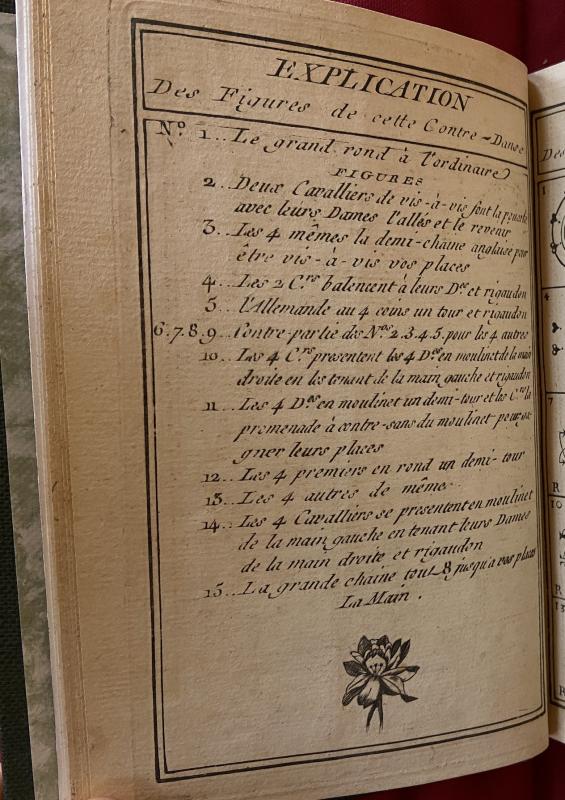 EXPLICATION
Des Figures de cette Contre-Danse
N.º 1.. Le grand rond à l'ordinaire
FIGURES
2.. Deux Cavalliers de vis-à-vis font la
avec leurs Dames l'allés et le revenir
3.. Les 4 mêmes la demi-chaine anglaise pour
être vis-à-vis vos places
4.. Les 2 C.rs balencent a leurs D.es et rigaudon
5.. l'Allemande au 4 coins un tour et rigaudon
6.7.8.9.. Contre-partie des N.os 2.3.4.5. pour les 4 autres
10.. Les 4 C.rs presentent les 4 D.es en moulinet de la main
droite en les tenant de la main gauche et rigaudon
11.. Les 4 D.es en moulinet un demi-tour et les C.rs la
promenade à contre-sans du moulinet pour ga-
gner leurs places
12.. Les 4 premiers en rond un demi-tour
13.. Les 4 autres de même
14.. Les 4 Cavalliers se presentent en moulinet
de la main gauche en tenant leurs Dames
de la main droite et rigaudon
15.. La grande chaine tout 8 jusqu'a vos places
La Main.
Des
1
4
7
R
10
R
13
R